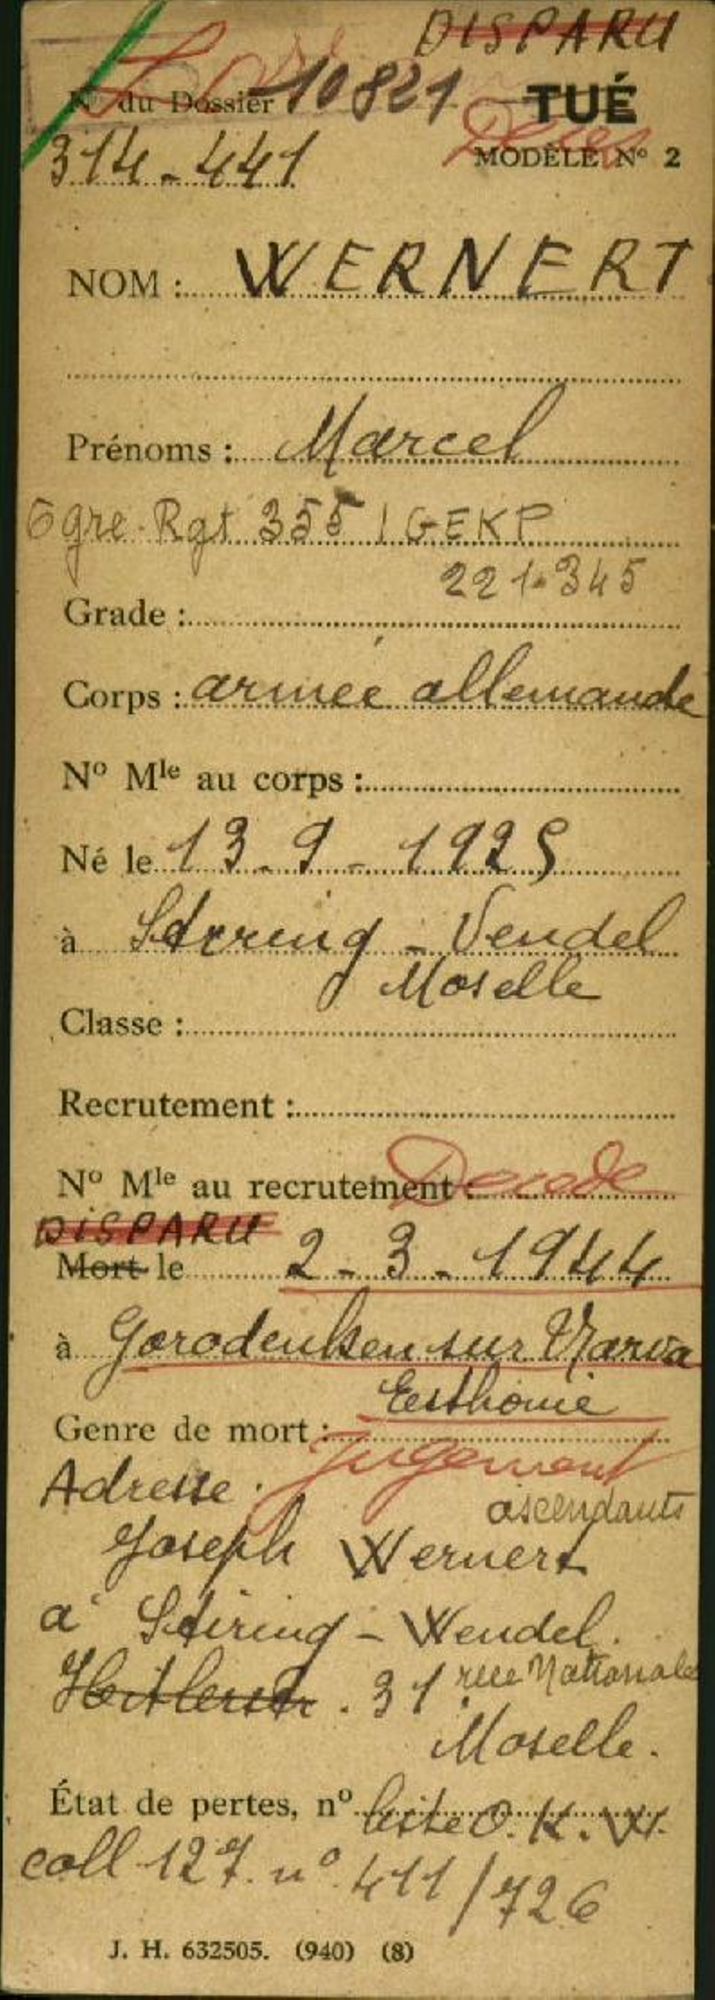 DISPARU
N° du Dossier 10821 TUÉ
Décès
314-441 MODÈLE N° 2
NOM : WERNERT
Prénoms : Marcel
Ggre-Rgt 355 / GEKP
221-345
Grade :
Corps : armée allemande
N° Mle au corps :
Né le 13-9-1925
à Styring-Vendel
Moselle
Classe :
Recrutement :
N° Mle au recrutement :
DISPARU
Mort le 2-3-1944
à Gorodenken sur Narva
Esthonie
Genre de mort :
jugement
Adresse : ascendants
Joseph Wernert
a Stiring-Wendel.
Hitlerstr. 31 rue Nationale
Moselle.
État de pertes, n° liste O.K.W.
coll 127. n° 411/726
J. H. 632505. (940) (8)